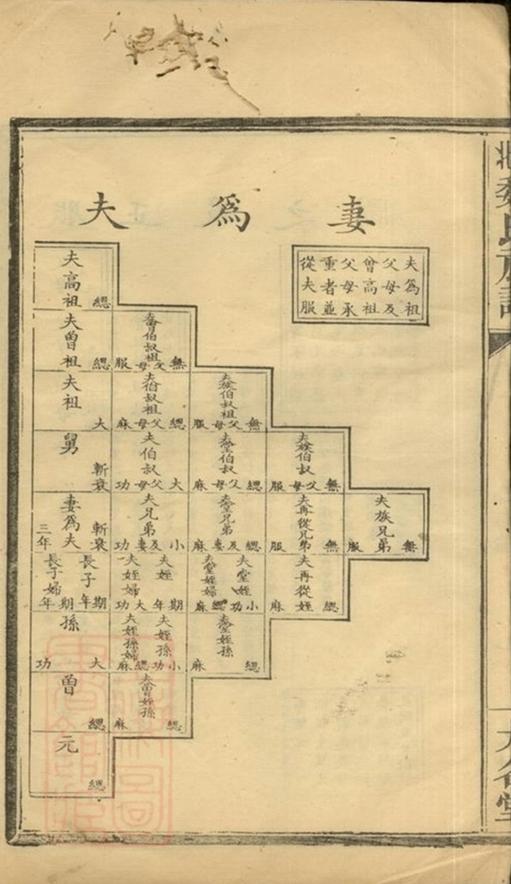 妻為夫
夫為祖
父母及
曾高祖
父母承
重者並
從夫服
夫高祖 緦
夫曾祖 緦
夫曾伯叔祖父母 無服
夫祖 大
夫伯叔祖父母 緦麻
夫族伯叔祖父母 無服
舅 斬衰
夫伯叔父母 大功
夫堂伯叔父母 緦麻
夫族伯叔父母 無服
妻為夫 斬衰三年
夫兄弟及妻 小功
夫堂兄弟及妻 緦麻
夫再從兄弟 無服
夫族兄弟 無服
長子 期年
長子婦 期年
夫姪 期年
夫姪婦 大功
夫堂姪 小功
夫堂姪婦 緦麻
夫再從姪 緦麻
孫 大功
夫姪孫 小功
夫姪孫婦 緦麻
夫堂姪孫 緦麻
曾 緦
夫曾姪孫 緦麻
元 緦